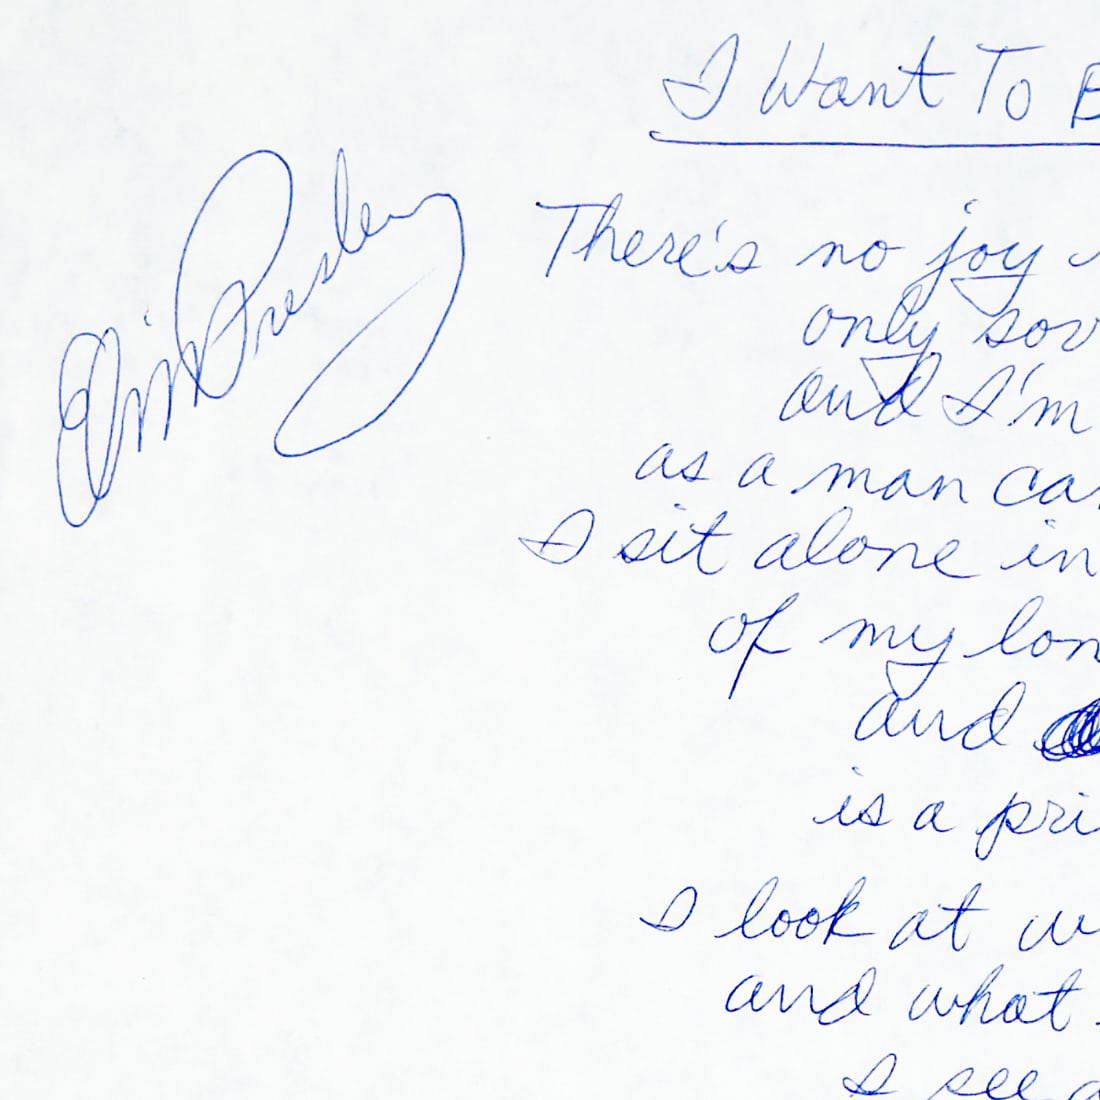 I Want To B
Elvis Presley
There's no joy
only sor
and I'm
as a man can
I sit alone in
of my lon
and
is a pri
I look at w
and what
I see a